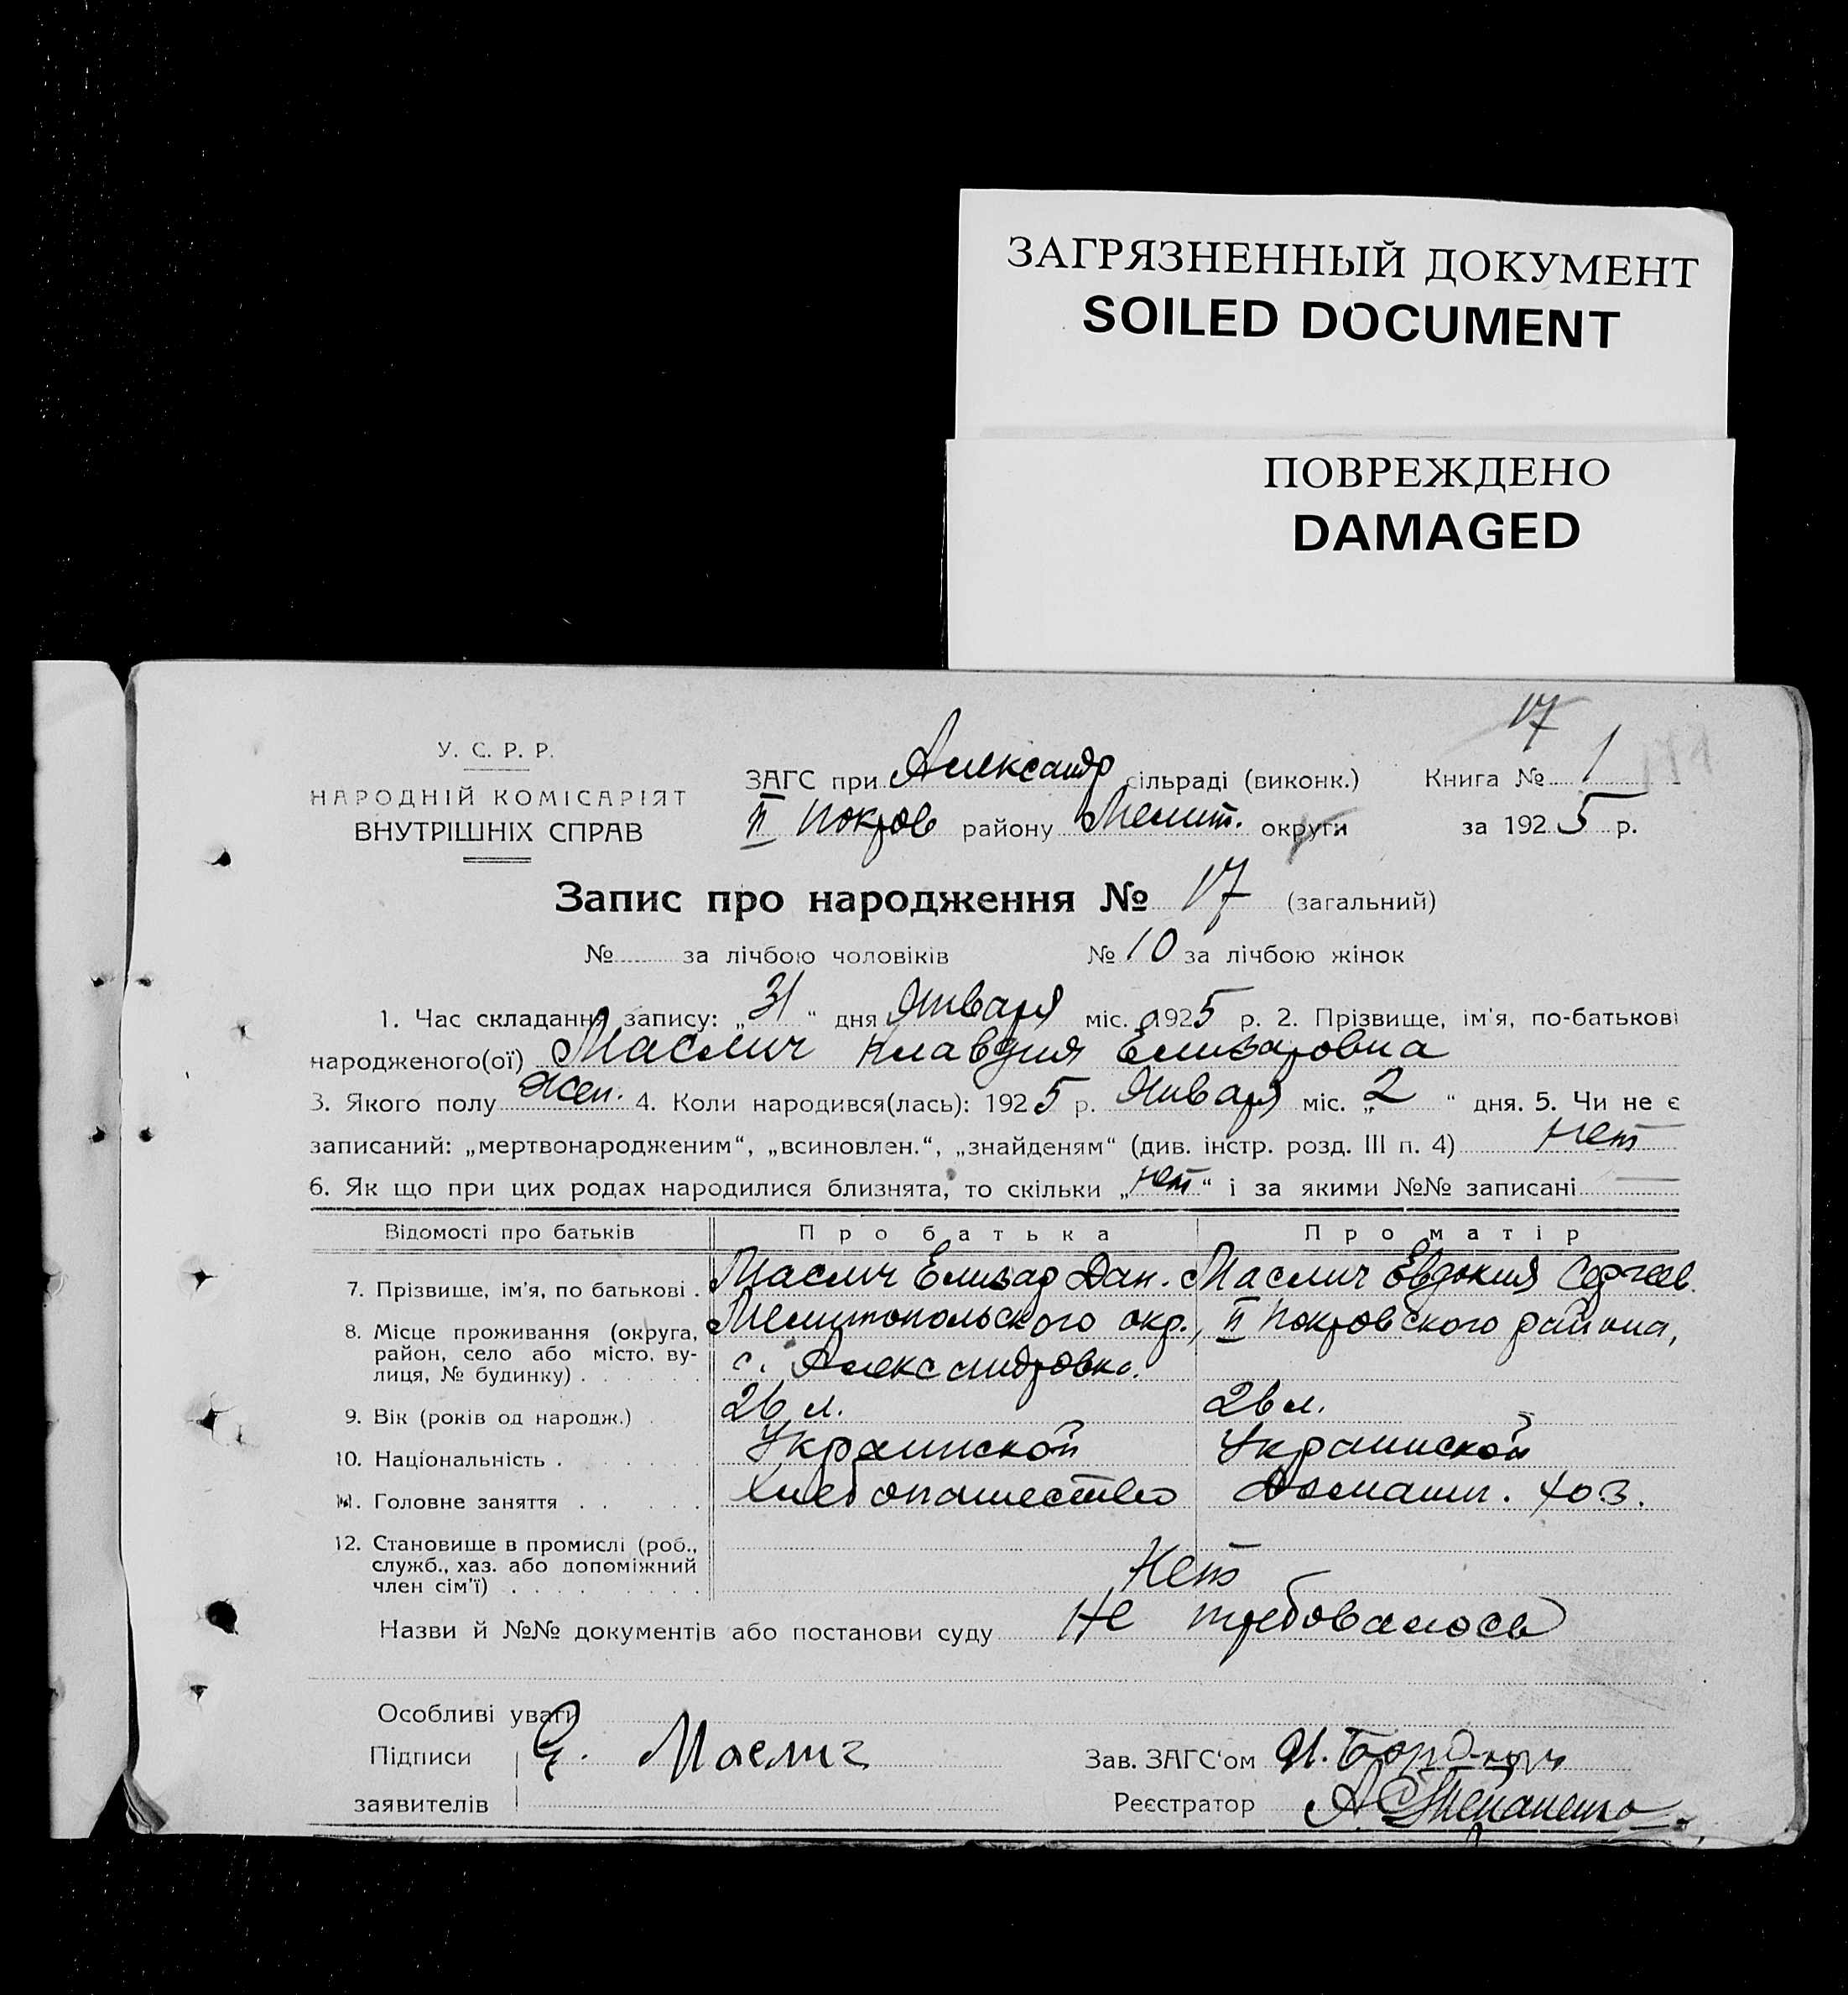 ЗАГРЯЗНЕННЫЙ ДОКУМЕНТ
SOILED DOCUMENT
ПОВРЕЖДЕНО
DAMAGED
17
У. С. Р. Р.
НАРОДНІЙ КОМІСАРІЯТ
ВНУТРІШНІХ СПРАВ
ЗАГС при Александр сільраді (виконк.) Книга № 1
II Покров району Мелит. округи за 1925 р.
Запис про народження № 17 (загальний)
№ за лічбою чоловіків № 10 за лічбою жінок
1. Час складання запису: „31“ дня Января міс. 1925 р. 2. Прізвище, ім'я, по-батькові
народженого(ої) Маслич Клавдия Елизаровна
3. Якого полу жен. 4. Коли народився(лась): 1925 р. Января міс. „2“ дня. 5. Чи не є
записаний: „мертвонародженим“, „всиновлен.“, „знайденям“ (див. інстр. розд. III п. 4) нет
6. Як що при цих родах народилися близнята, то скільки „нет“ і за якими №№ записані —
Відомості про батьків Про батька Про матір
7. Прізвище, ім'я, по батькові . Маслич Елизар Дан. Маслич Евдокия Сергеев.
8. Місце проживання (округа, Мелитопольского окр., II Покровского района,
район, село або місто, ву- с. Александровка.
лиця, № будинку) . . . . . .
9. Вік (років од народж.) . 26 л. 26 л.
10. Національність . . . . . . Украинской Украинской
11. Головне заняття . . . . . Хлебопашество Домашн. хоз.
12. Становище в промислі (роб.,
служб., хаз. або допоміжний
член сім'ї) . . . . . . . . Нет
Назви й №№ документів або постанови суду Не требовалось
Особливі уваги
Підписи Е. Маслич Зав. ЗАГС'ом И.
заявителів Реєстратор А. Степаненко